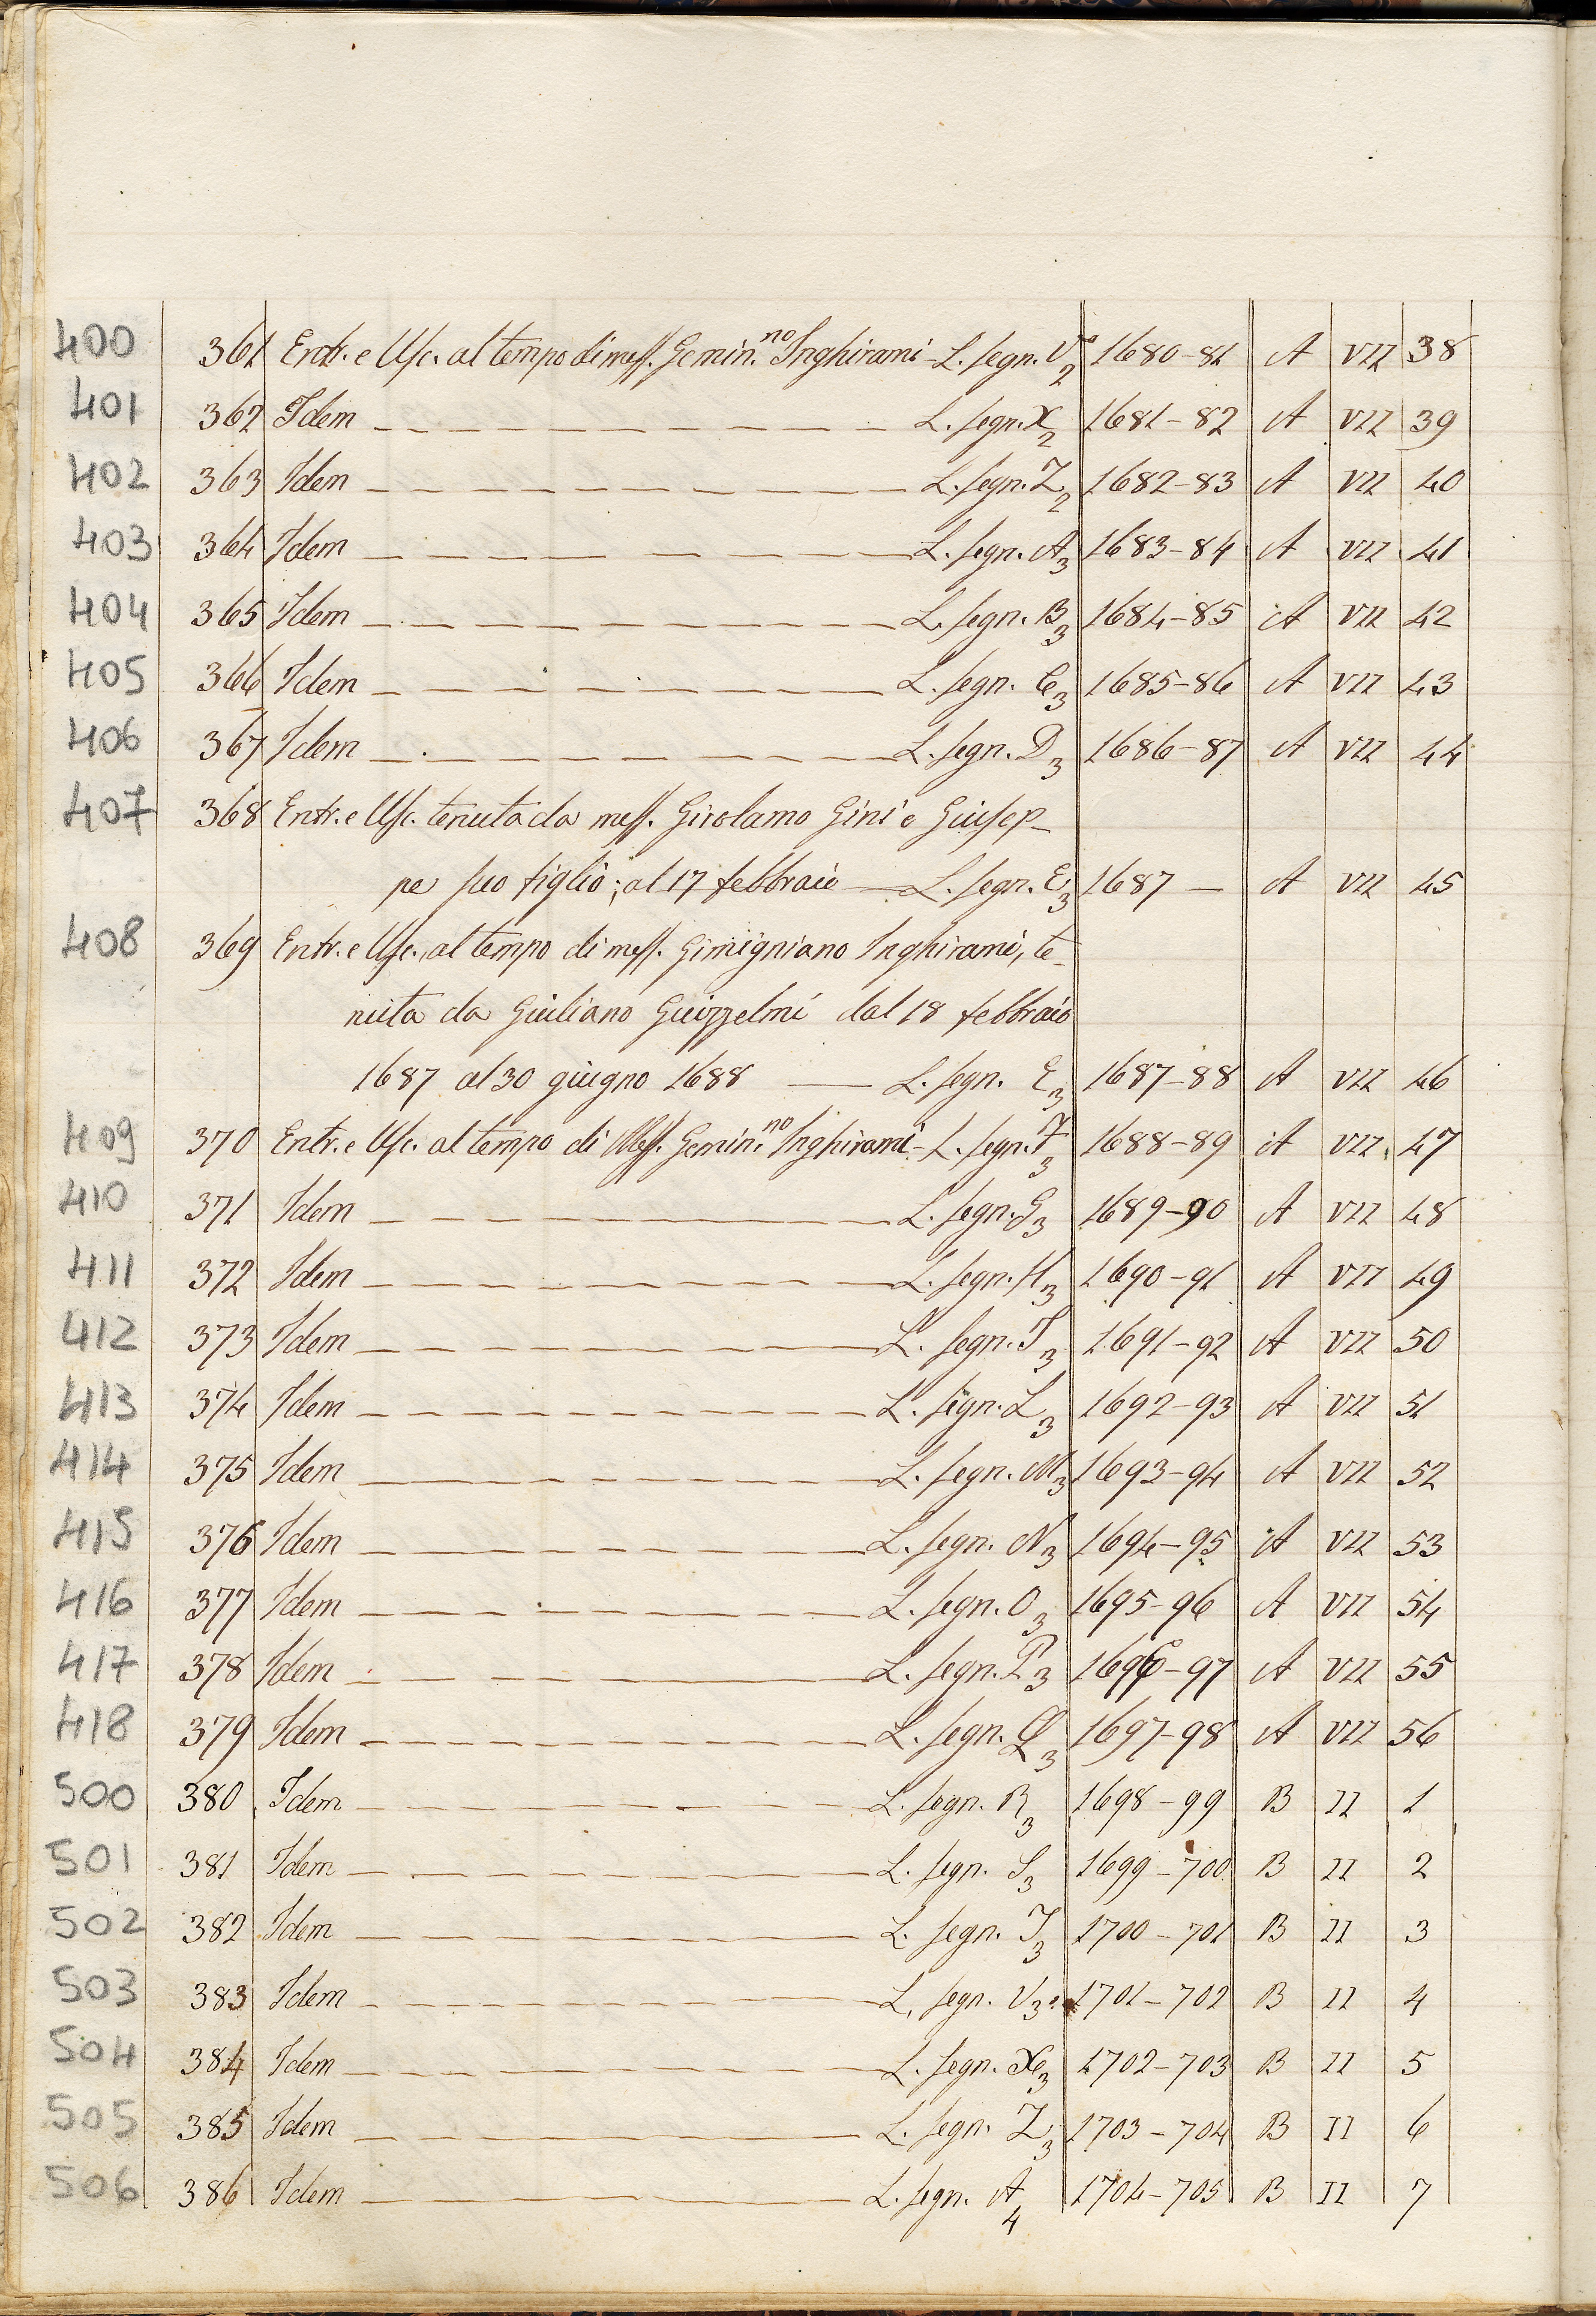 400 361 Entr. e Usc. al tempo di mess. Gemin.no Inghirami - L. segn. V2 1680-81 A VII 38
401 362 Idem L. segn. X2 1681-82 A VII 39
402 363 Idem L. segn. Z2 1682-83 A VII 40
403 364 Idem L. segn. A3 1683-84 A VII 41
404 365 Idem L. segn. B3 1684-85 A VII 42
405 366 Idem L. segn. C3 1685-86 A VII 43
406 367 Idem L. segn. D3 1686-87 A VII 44
407 368 Entr. e Usc. tenuta da mess. Girolamo Gini e Giusep-
pe suo figlio; al 17 febbraio - L. segn. E3 1687 - A VII 45
408 369 Entr. e Usc., al tempo di mess. Gimigniano Inghirami, te-
nuta da Giuliano Guizzelmi dal 18 febbraio
1687 al 30 giugno 1688 - L. segn. E3 1687-88 A VII 46
409 370 Entr. e Usc. al tempo di Mess. Gemin.no Inghirami - L. segn. F3 1688-89 A VII 47
410 371 Idem L. segn. G3 1689-90 A VII 48
411 372 Idem L. segn. H3 1690-91 A VII 49
412 373 Idem L. segn. I3 1691-92 A VII 50
413 374 Idem L. segn. L3 1692-93 A VII 51
414 375 Idem L. segn. M3 1693-94 A VII 52
415 376 Idem L. segn. N3 1694-95 A VII 53
416 377 Idem L. segn. O3 1695-96 A VII 54
417 378 Idem L. segn. P3 1696-97 A VII 55
418 379 Idem L. segn. Q3 1697-98 A VII 56
500 380 Idem L. segn. R3 1698-99 B II 1
501 381 Idem L. segn. S3 1699-700 B II 2
502 382 Idem L. segn. T3 1700-701 B II 3
503 383 Idem L. segn. V3 1701-702 B II 4
504 384 Idem L. segn. X3 1702-703 B II 5
505 385 Idem L. segn. Z3 1703-704 B II 6
506 386 Idem L. segn. A4 1704-705 B II 7